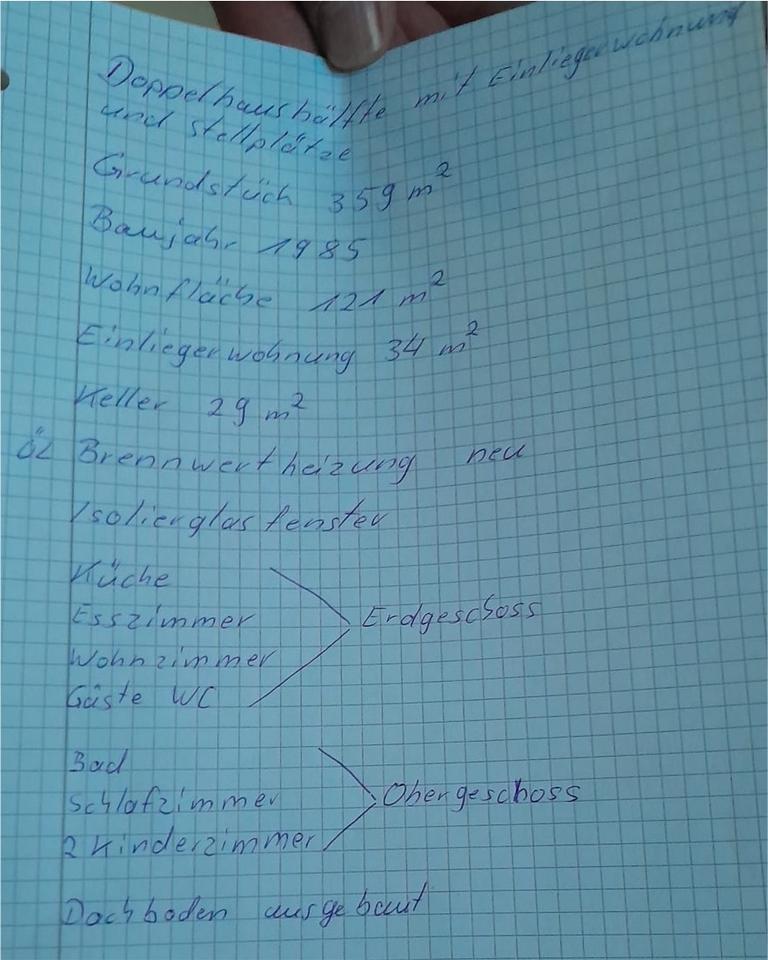 Doppelhaushälfte mit Einliegerwohnung
und Stellplätze
Grundstück 359 m²
Baujahr 1985
Wohnfläche 121 m²
Einliegerwohnung 34 m²
Keller 29 m²
Öl Brennwertheizung neu
Isolierglasfenster
Küche
Esszimmer Erdgeschoss
Wohnzimmer
Gäste WC
Bad
Schlafzimmer Obergeschoss
2 Kinderzimmer
Dachboden ausgebaut